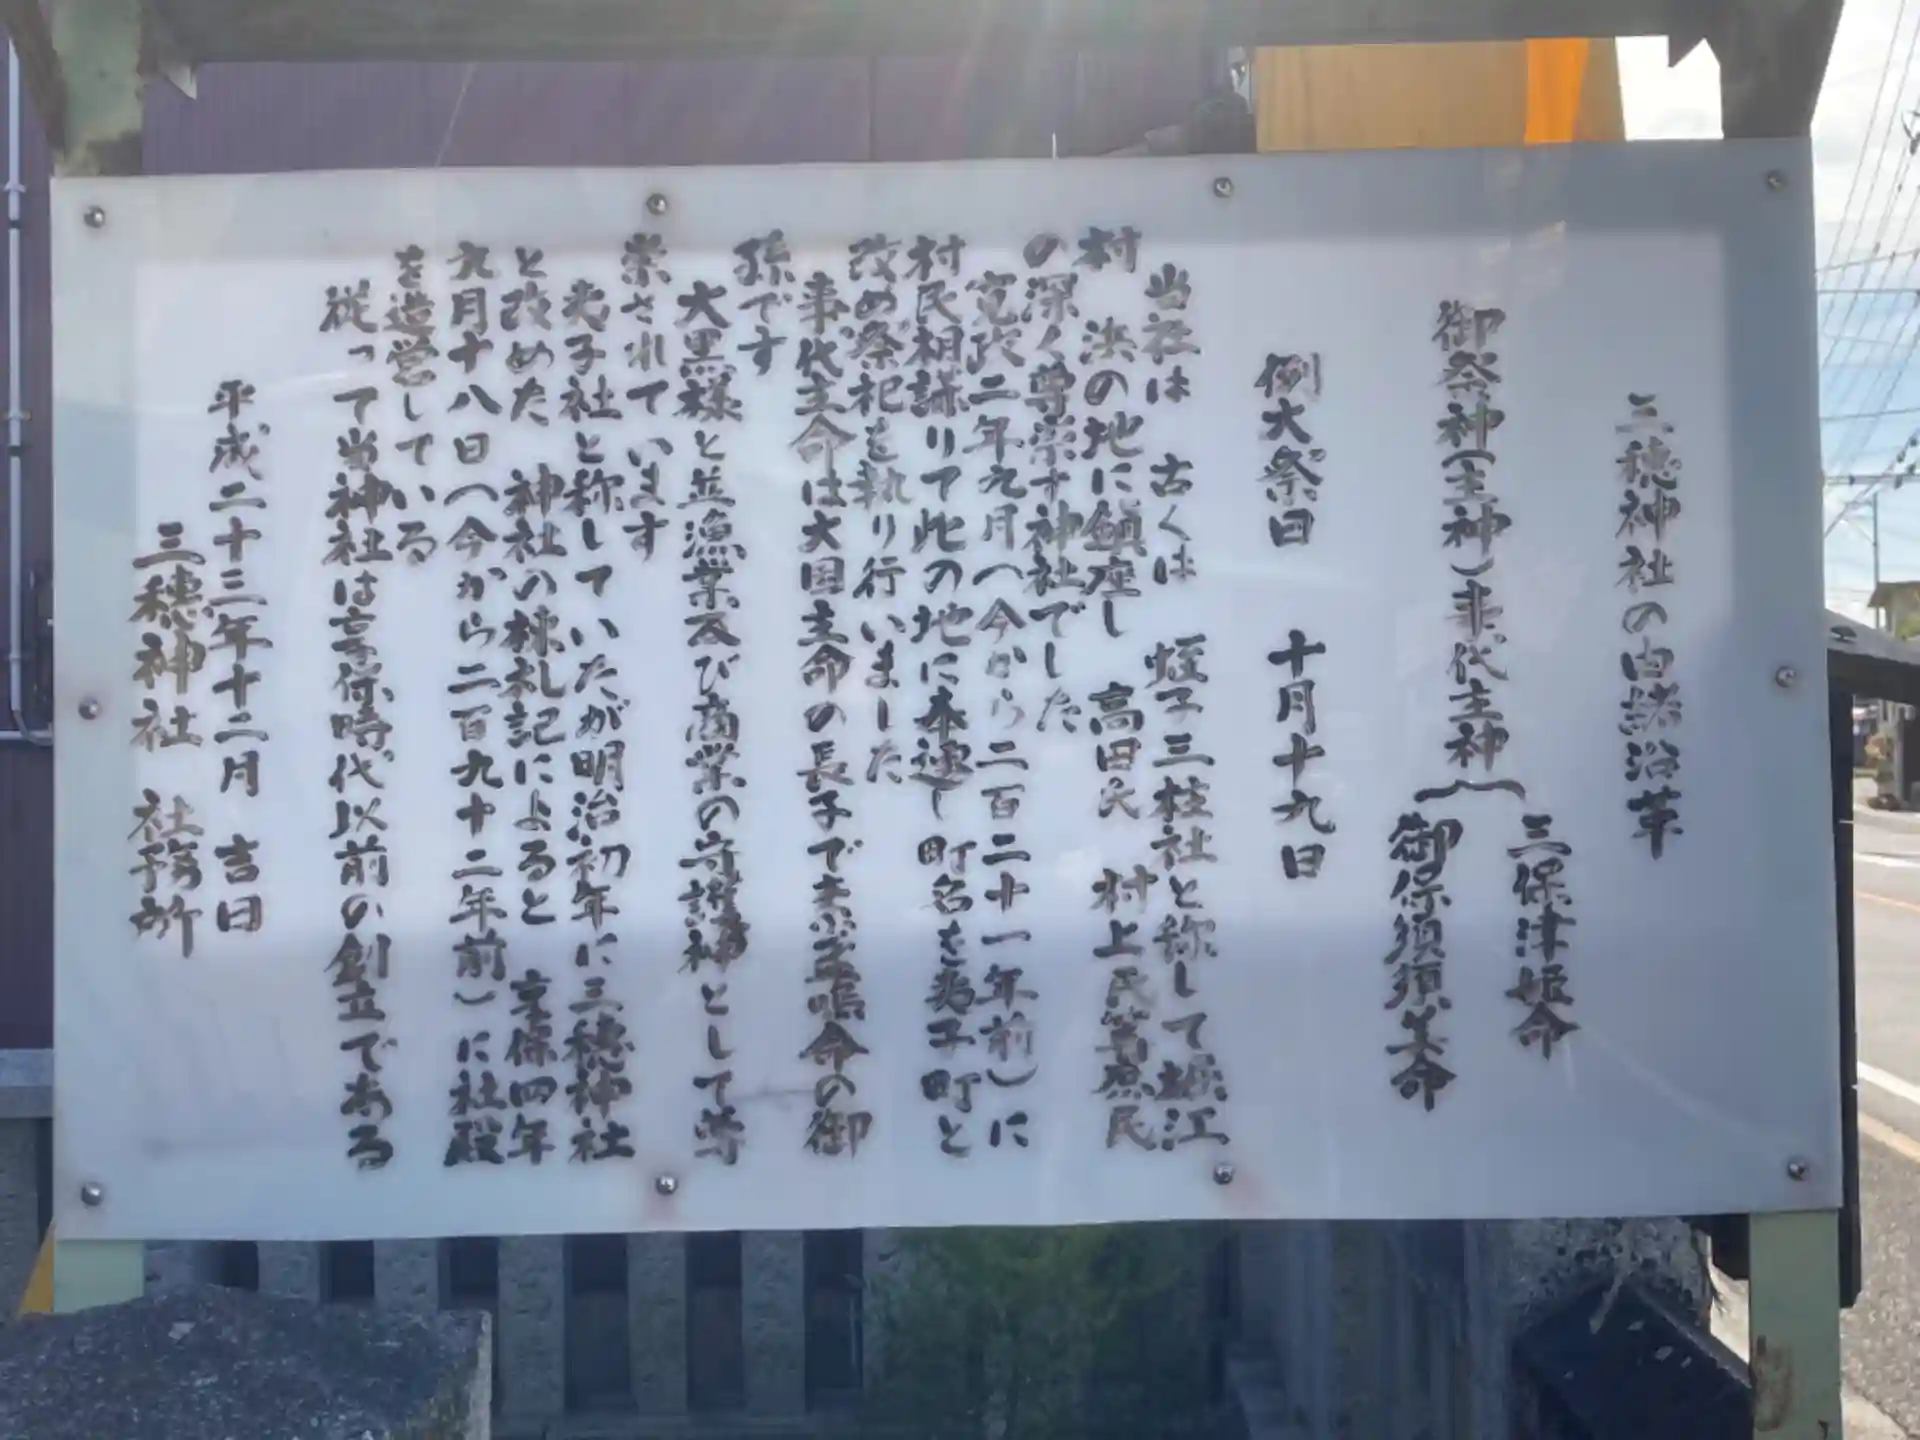 三穂神社の由緒沿革
御祭神(主神)事代主神
三保津姫命
御保須須美命
例大祭日 十月十九日
当社は 古くは 蛭子三社と称して堀江
村 浜の地に鎮座し 高田氏 村上氏等庶民
の深く尊崇す神社でした
寛政二年九月(今から二百二十一年前)に
村民相謀りて此の地に奉遷し町名を夷子町と
改め祭祀を執り行いました
事代主命は大国主命の長子で嗚命の御
孫です
大黒様と並漁業及び商業の守護神として尊
崇されています
夷子社と称していたが明治初年に三穂神社
と改めた 神社の棟札記によると 享保四年
九月十八日(今から二百九十二年前)に社殿
を造営している
従って当神社は享保時代以前の創立である
平成二十三年十二月 吉日
三穂神社 社務所